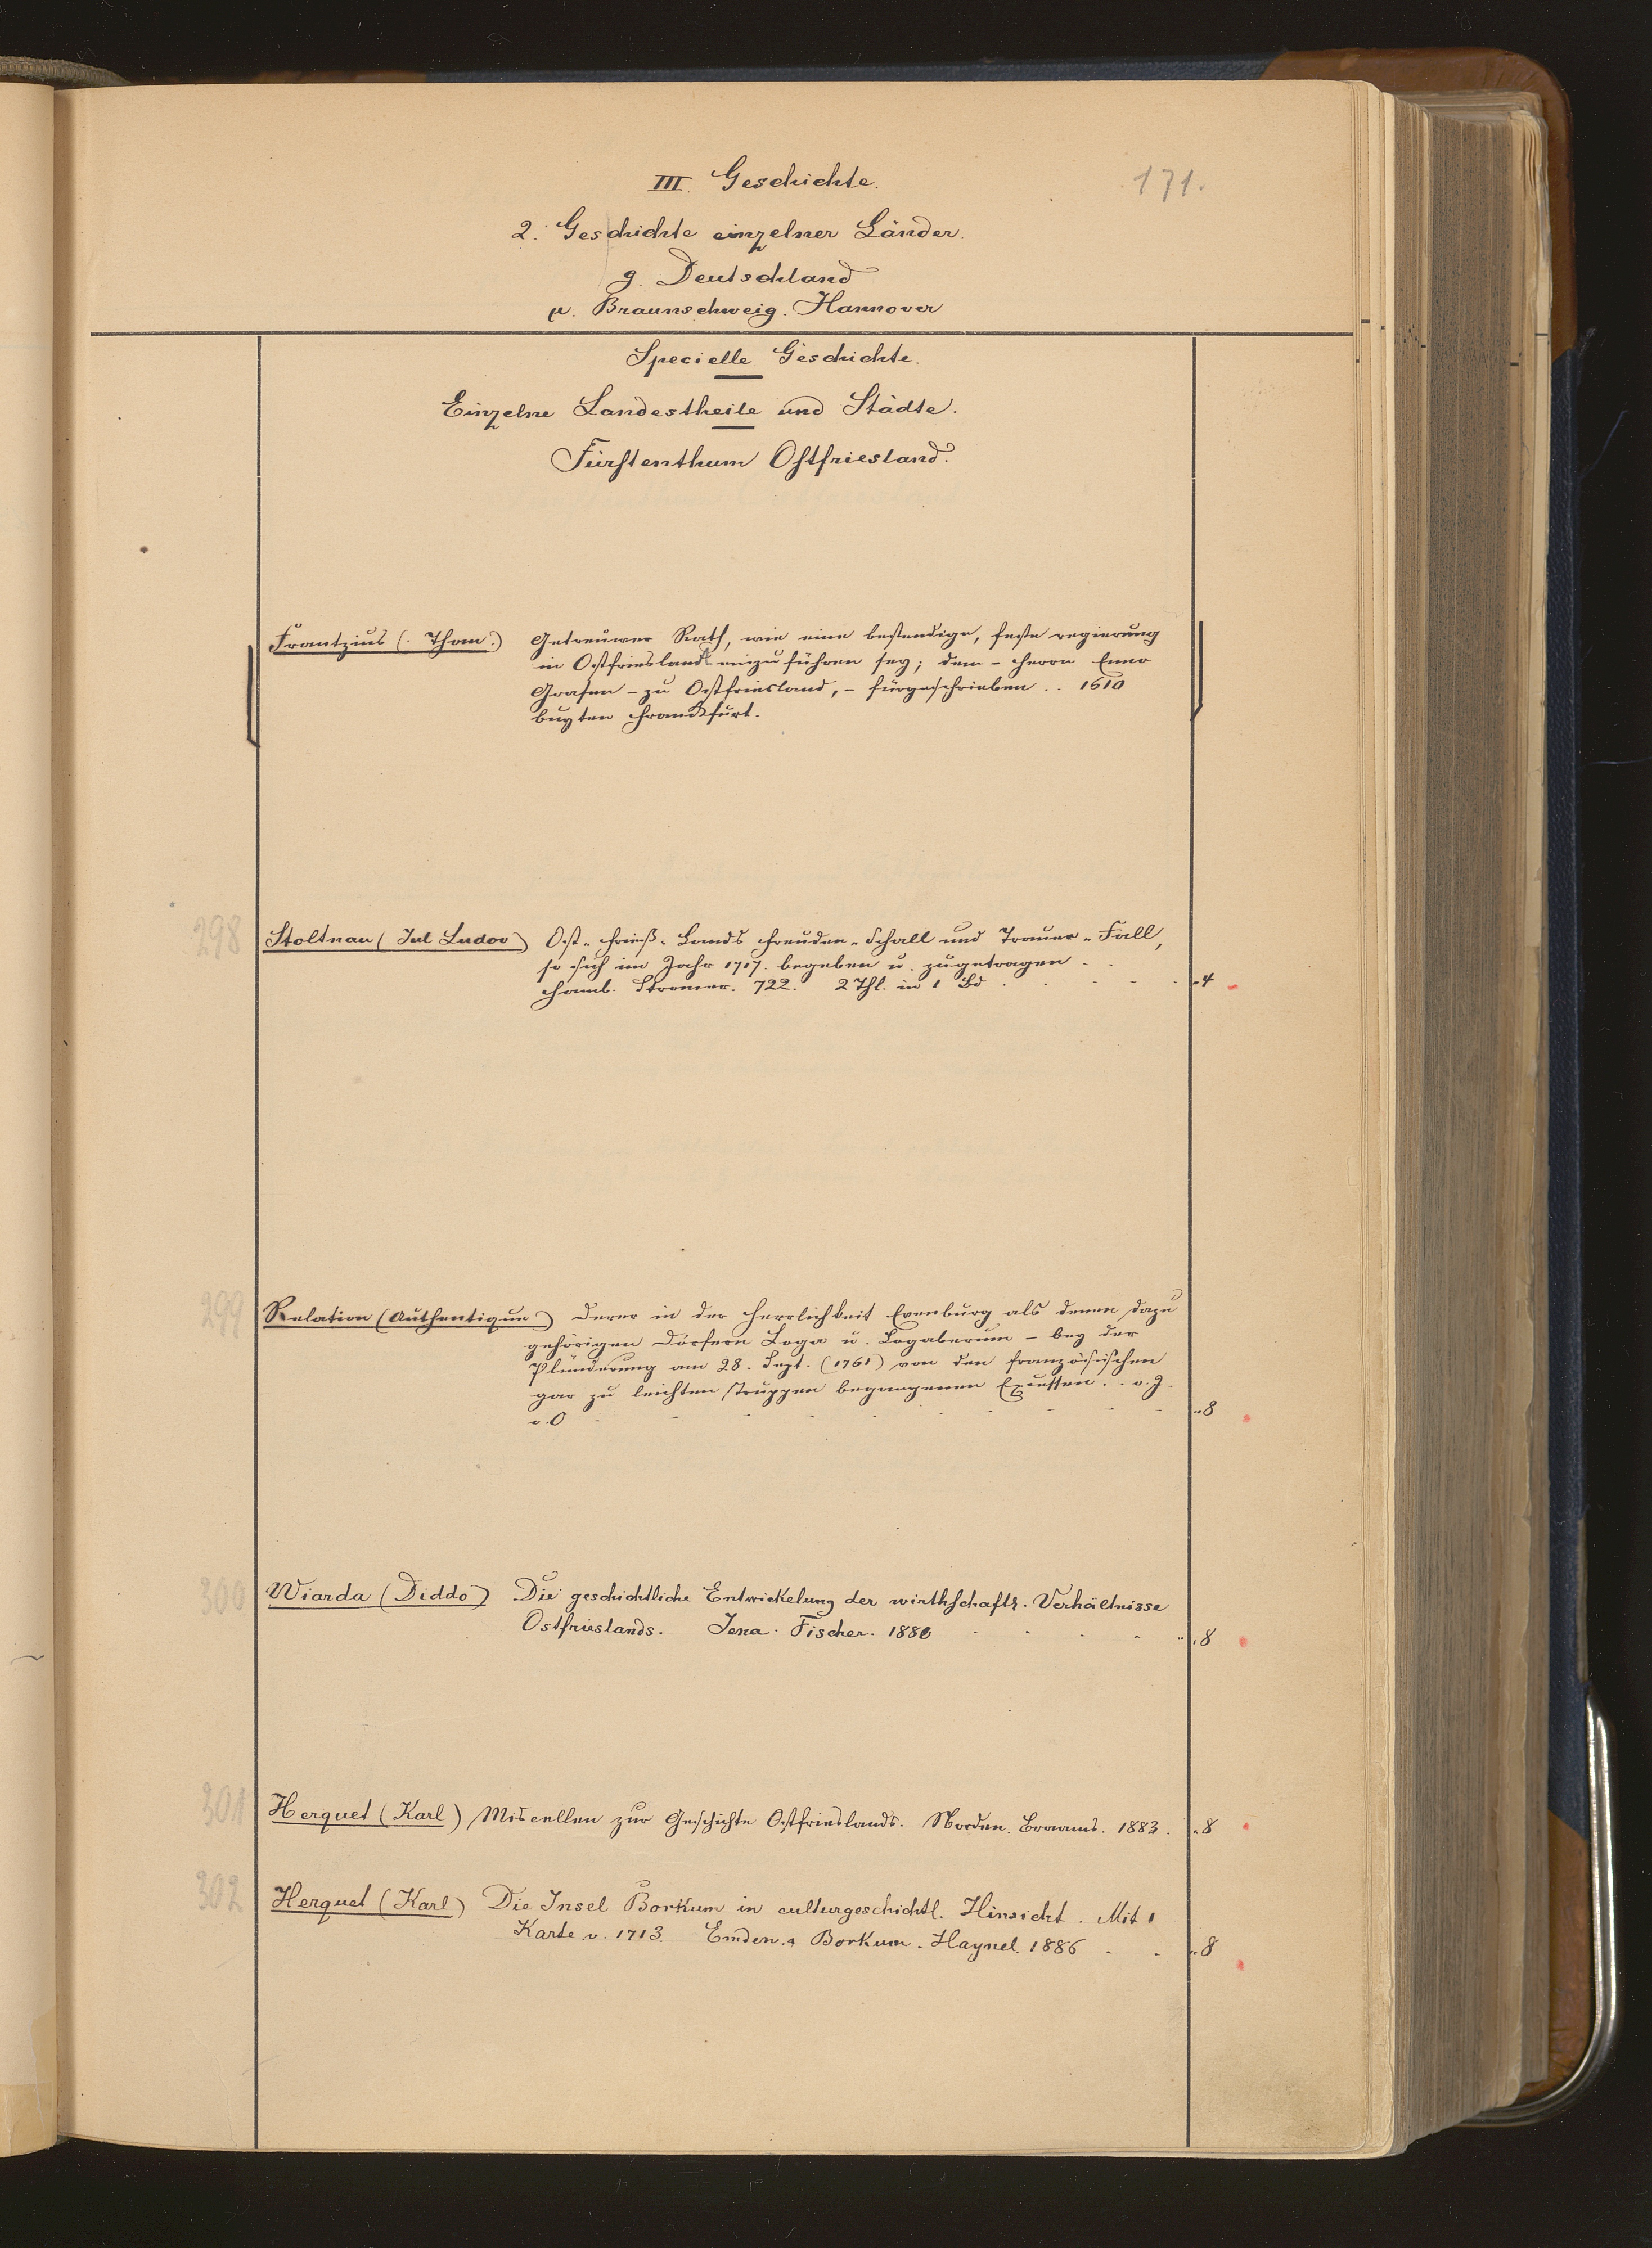 III. Geschichte.
171.
2. Geschichte einzelner Länder.
g. Deutschland
μ. Braunschweig. Hannover
Specielle Geschichte.
Einzelne Landestheile und Städte.
Fürstenthum Ostfriesland.
Frantzius (Thom.) Getreuwer Rath, wie eine bestendige, feste regierung
in Ostfriesland einzuführen sey; dem - Herrn Enno
Grafen - zu Ostfriesland, - fürgeschrieben .. 1610
buyten Franckfurt.
298 Stoltnau (Jul Ludov) Ost-Frieß-Lands Freuden-Schall und Trauer-Fall,
so sich im Jahr 1717. begeben u. zugetragen
Hamb. Stromer. 722. 2 Thl. in 1 Bd 4
299 Relation (Authentique) Derer in der Herrlichkeit Evenburg als denen dazu
gehörigen Dörfern Loga u. Logaberum - bey der
Plünderung am 28. Sept. (1761) von den französischen
gar zu leichten Truppen begangenen Excessen. . o. J.
u. O 8
300 Wiarda (Diddo) Die geschichtliche Entwickelung der wirthschaftl. Verhältnisse
Ostfrieslands. Jena. Fischer. 1880 8
301 Herquet (Karl) Miscellen zur Geschichte Ostfrieslands. Norden. Braams. 1883. 8
302 Herquet (Karl) Die Insel Borkum in culturgeschichtl. Hinsicht. Mit 1
Karte v. 1713. Emden. Borkum. Haynel. 1886 8